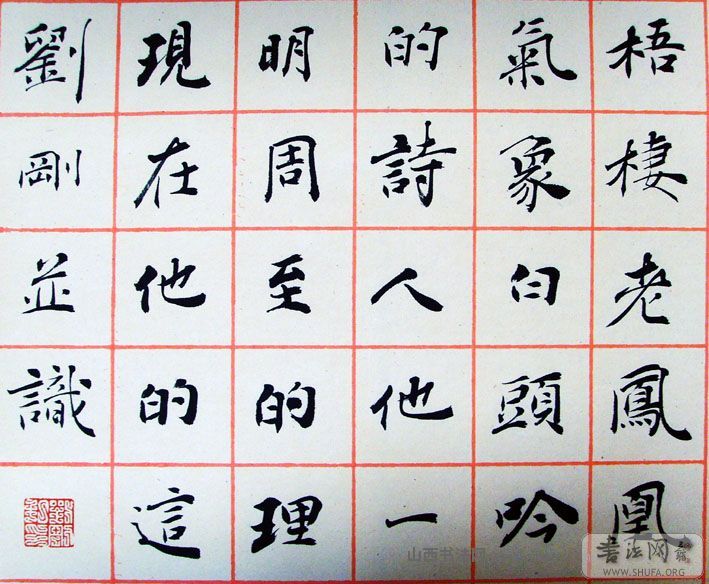 梧棲老鳳凰
氣象白頭吟
的詩人他一
明周至的理
現在他的這
劉剛並識
山西书法网
書法网
WWW.SHUFA.ORG